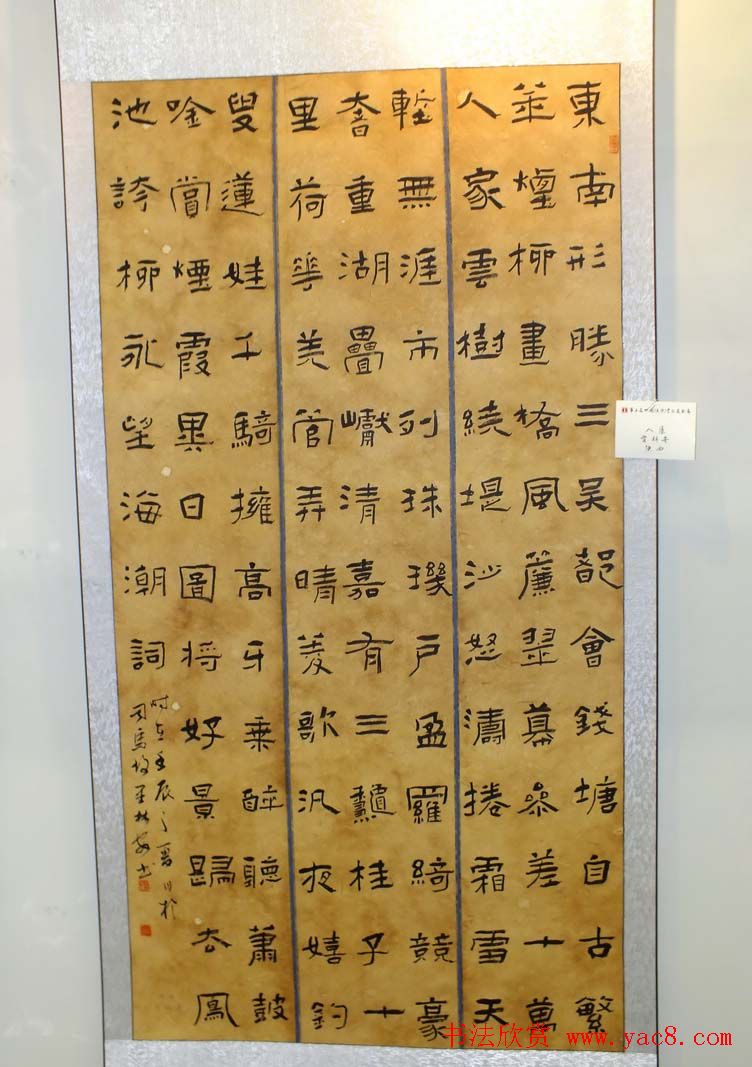 東南形勝三吳都會錢塘自古繁
華煙柳畫橋風簾翠幕參差十萬
人家雲樹繞堤沙怒濤捲霜雪天
塹無涯市列珠璣戶盈羅綺競豪
奢重湖疊巘清嘉有三龝桂子十
里荷華羌管弄晴菱歌汎夜嬉釣
叟蓮娃千騎擁高牙乘醉聽蕭鼓
唫賞煙霞異日圖將好景歸去鳳
池誇柳永望海潮詞
時在壬辰之夏日於
司馬
书法欣赏 www.yac8.com